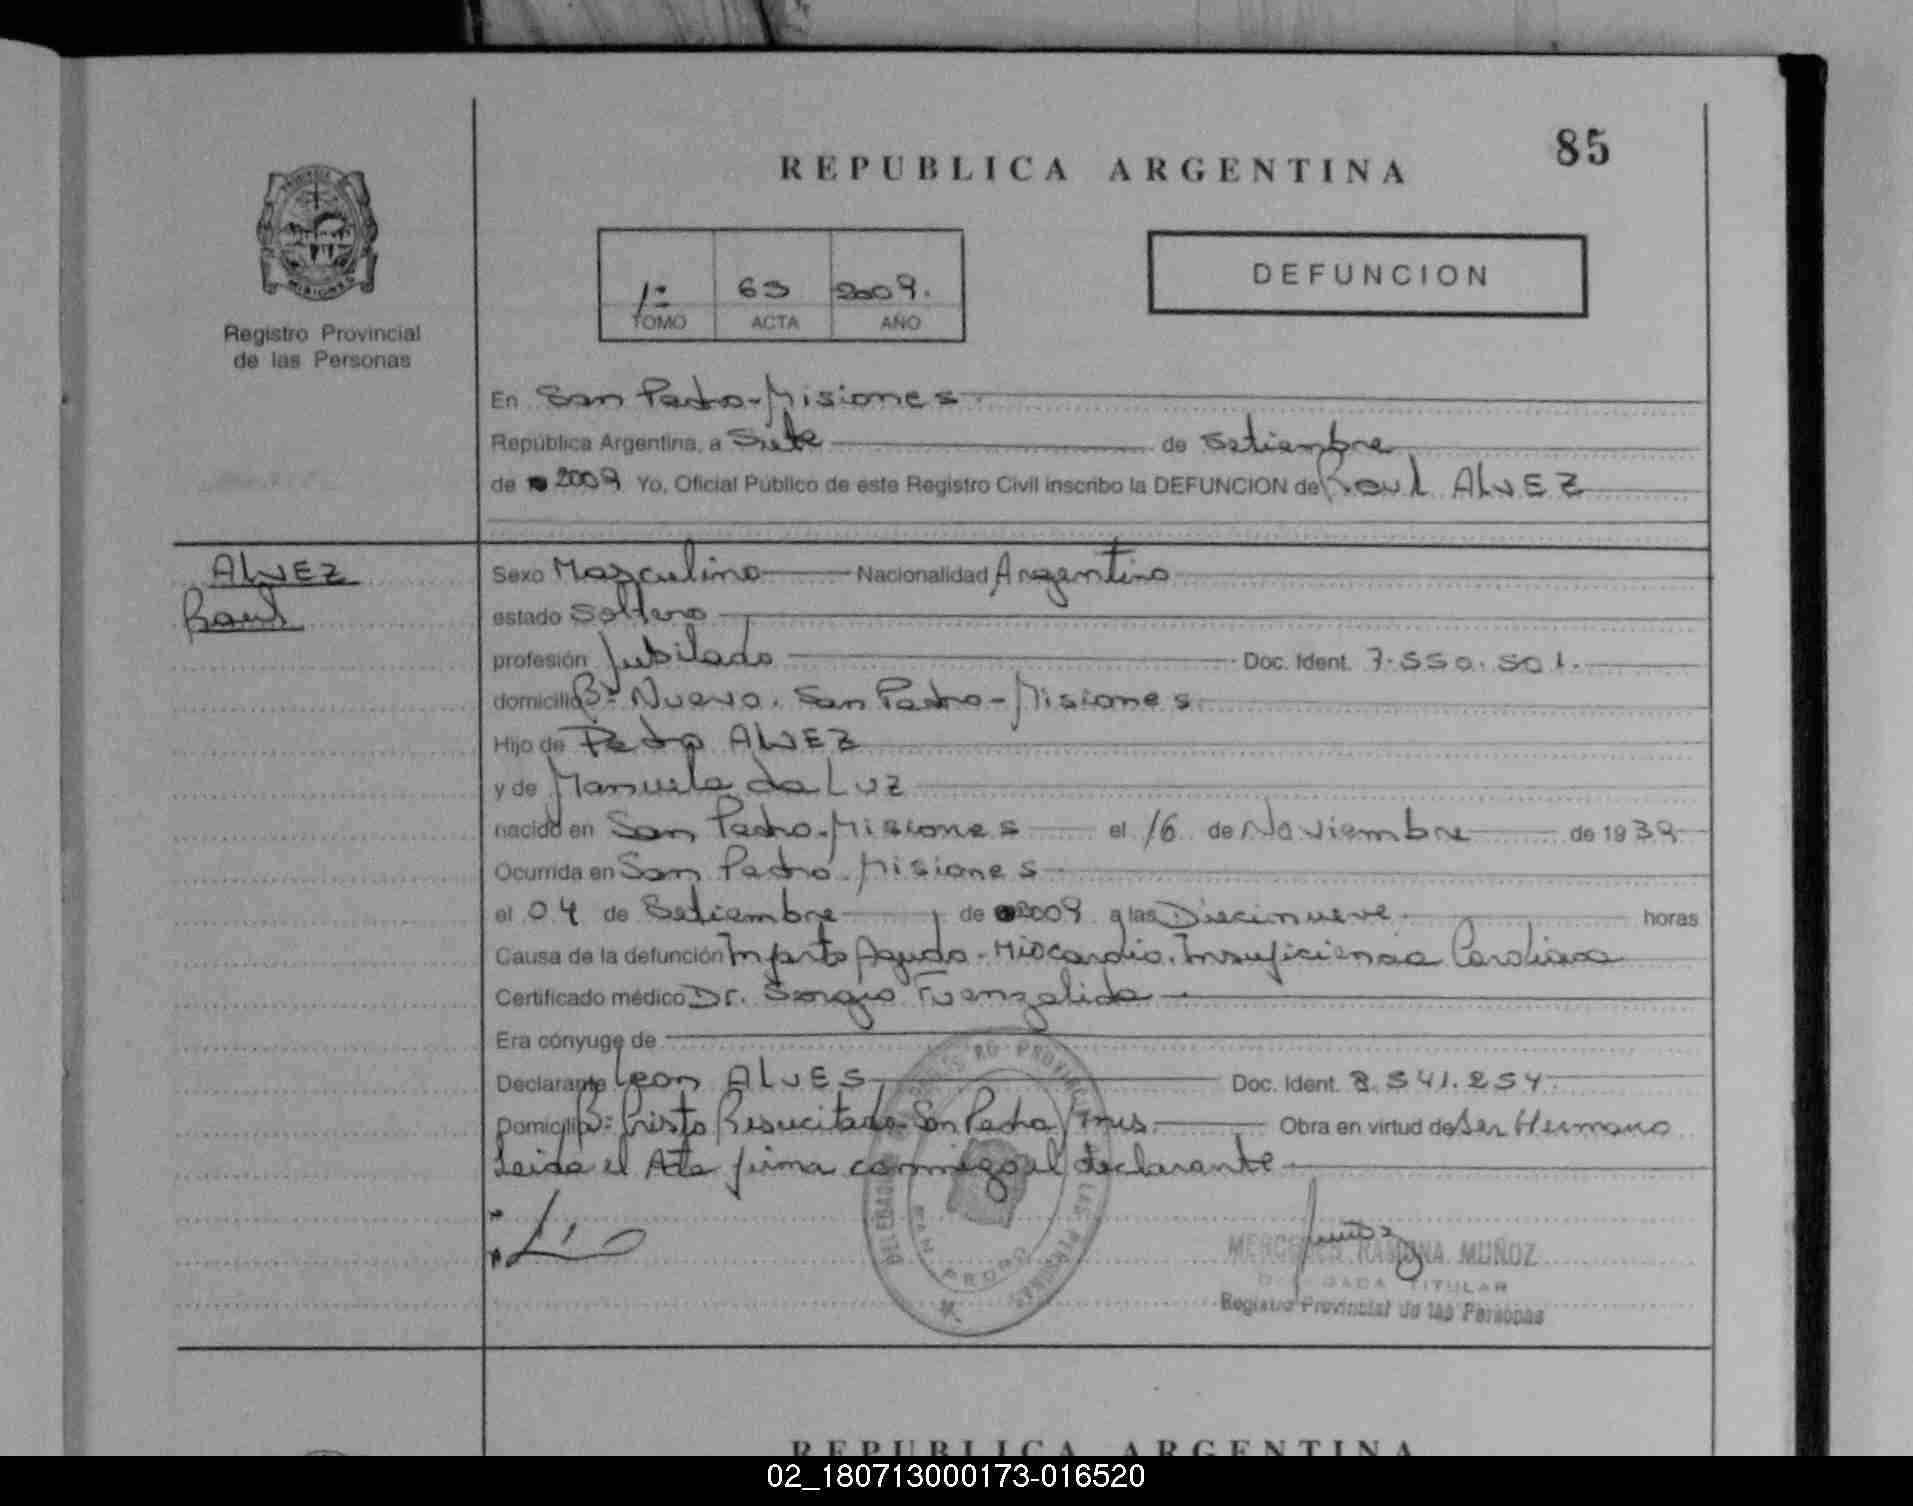 85
REPUBLICA ARGENTINA
PROVINCIA DE
MISIONES
Registro Provincial
de las Personas
1º 63 2009.
TOMO ACTA AÑO
DEFUNCION
En San Pedro-Misiones
República Argentina, a Siete de Setiembre
de 2009 Yo, Oficial Público de este Registro Civil inscribo la DEFUNCION de Raul ALVEZ
ALVEZ
Raul
Sexo Masculino Nacionalidad Argentino
estado Soltero
profesión Jubilado Doc. Ident. 7.550.501.
domicilio Bº Nuevo. San Pedro-Misiones
Hijo de Pedro ALVEZ
y de Manuela da Luz
nacido en San Pedro-Misiones el 16 de Noviembre de 1939
Ocurrida en San Pedro-Misiones
el 04 de Setiembre de 2009 a las Diecinueve horas
Causa de la defunción Infarto Agudo-Miocardio. Insuficiencia Cardiaca
Certificado médico Dr. Sergio Fuenzalida
Era cónyuge de
Declarante Leon ALVES Doc. Ident. 8.541.254.
Domicilio Bº Cristo Resucitado San Pedro Mns. Obra en virtud de Ser Hermano
Leida el Acta firma conmigo el declarante
MERCEDES RAMONA MUÑOZ
DELEGADA TITULAR
Registro Provincial de las Personas
REPUBLICA ARGENTINA
02_180713000173-016520